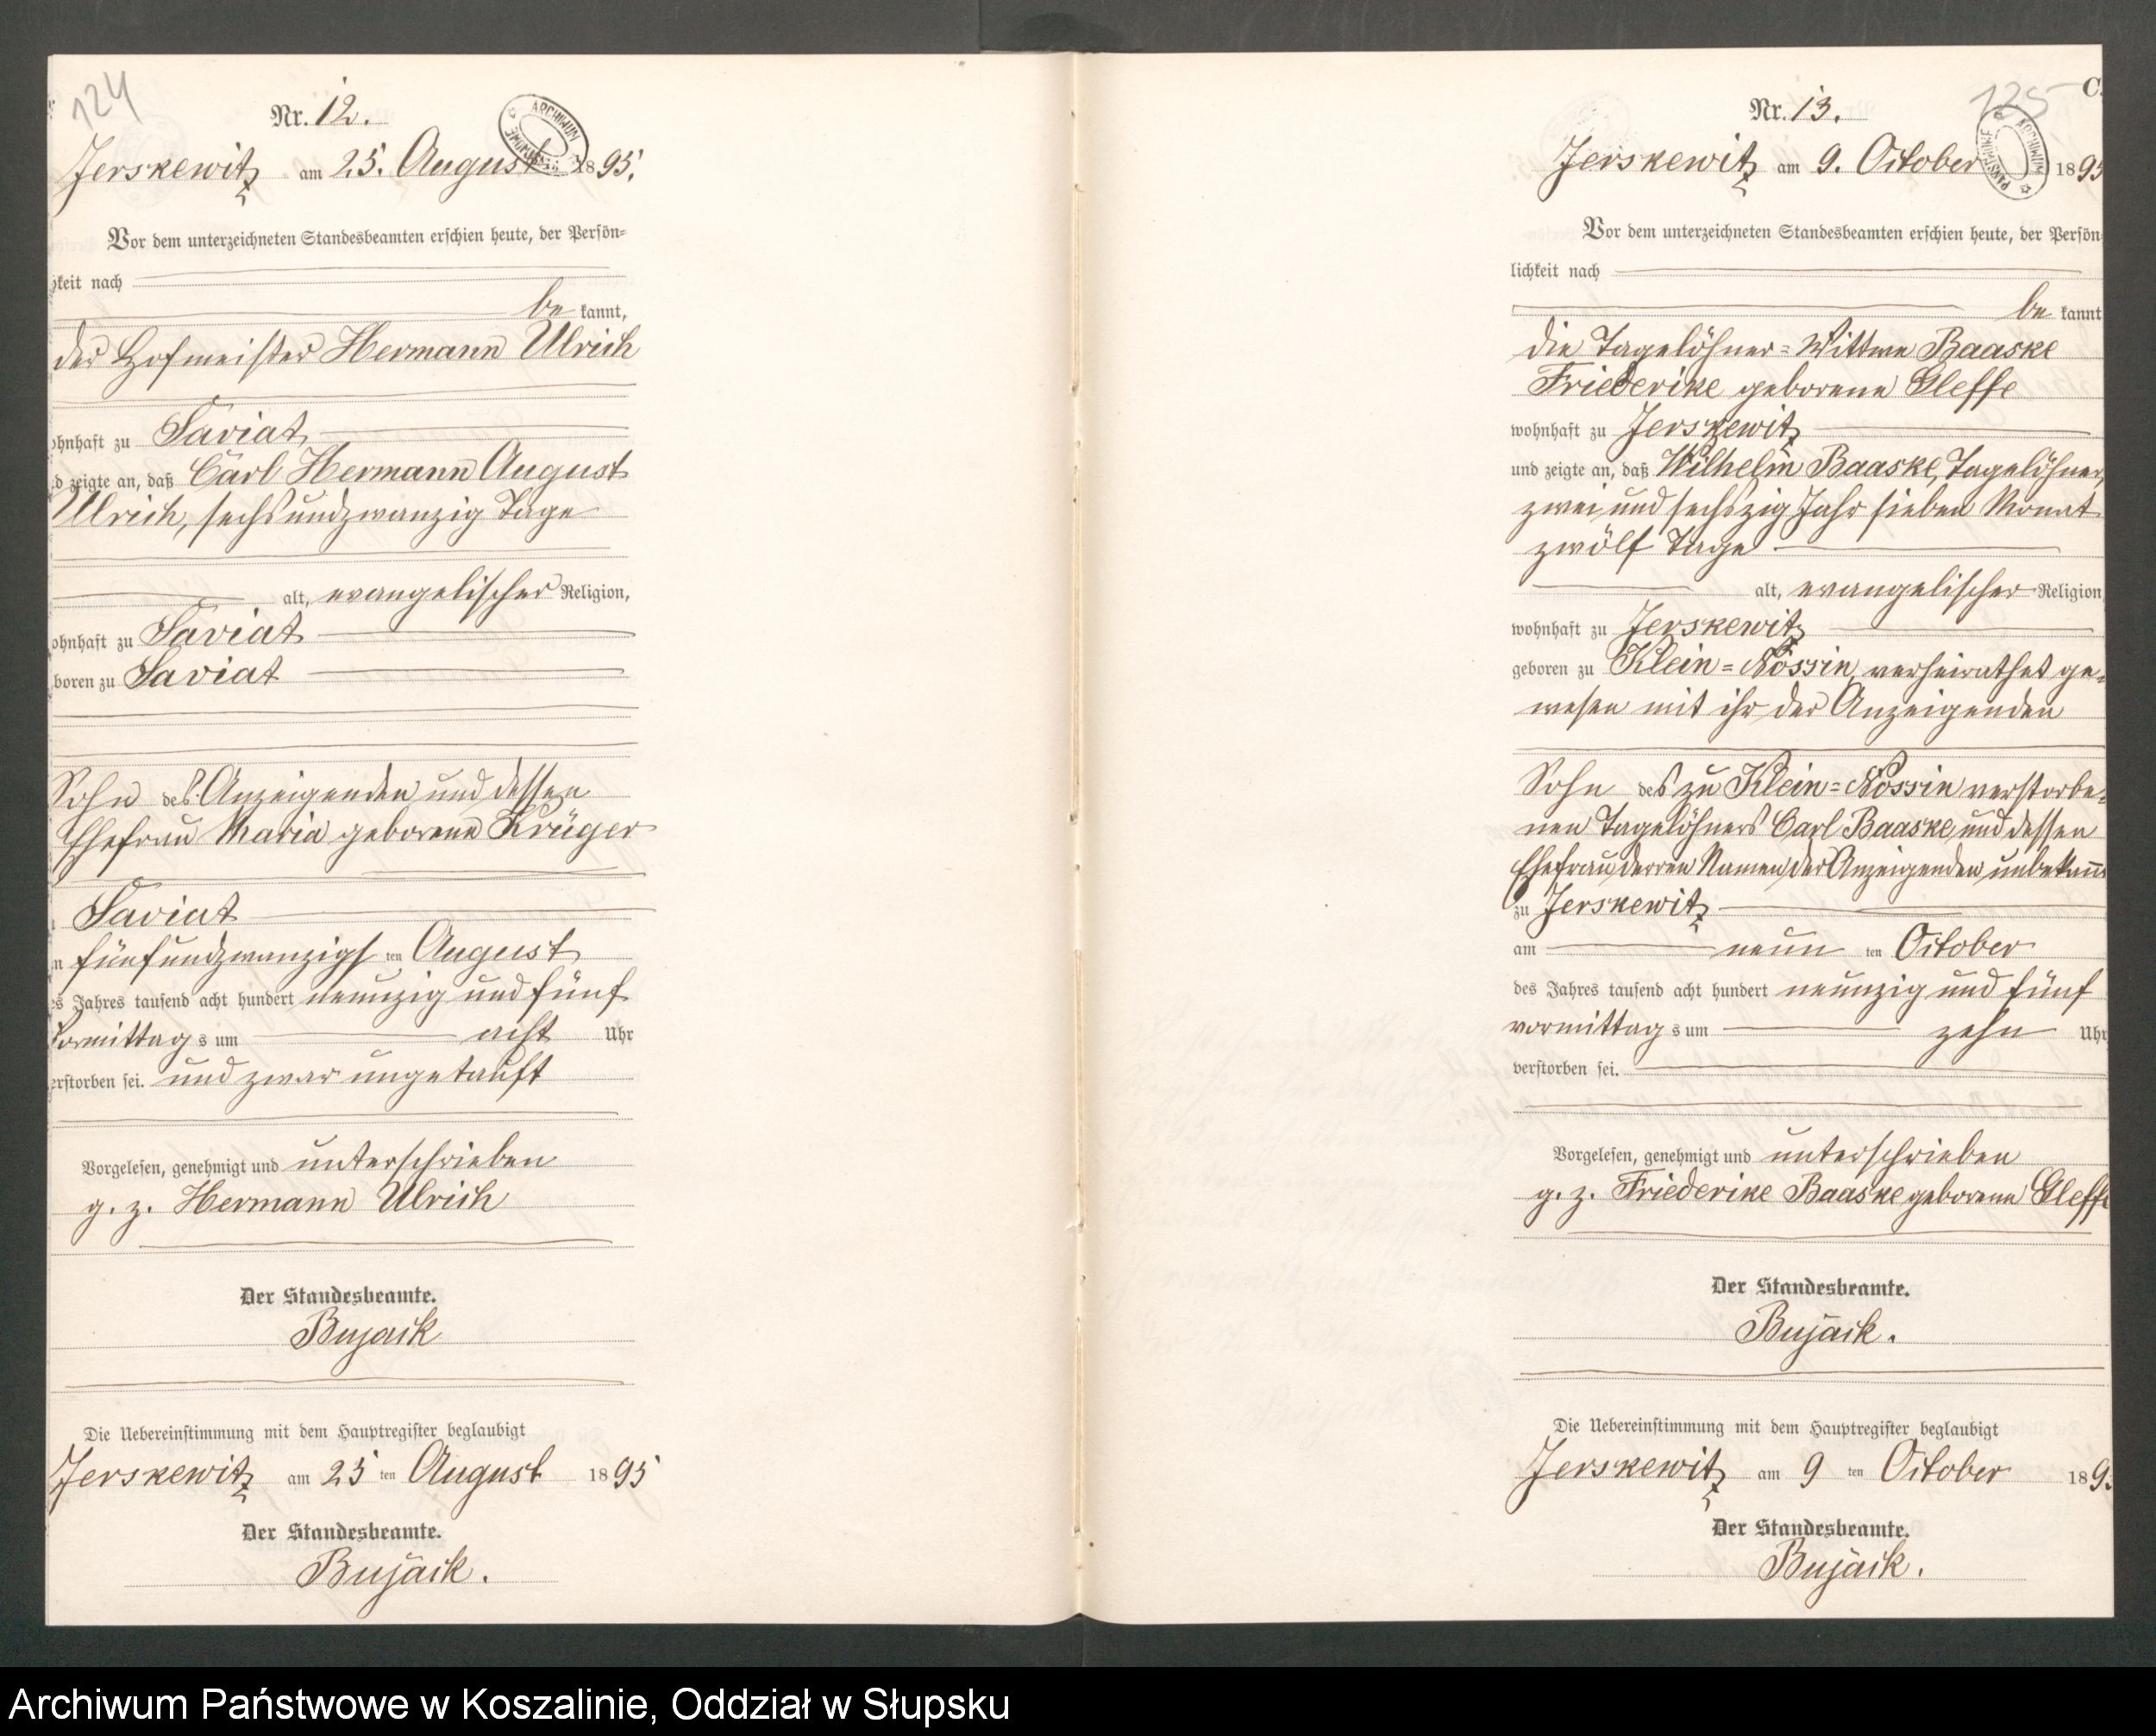 124
Nr. 12.
ARCHIWUM
Jerskewitz am 25. August 1895.
Vor dem unterzeichneten Standesbeamten erschien heute, der Persön=
keit nach
be kannt,
der Hofmeister Hermann Ulrich
ohnhaft zu Saviat
d zeigte an, daß Carl Hermann August
Ulrich, sechsundzwanzig Tage
alt, evangelischer Religion,
ohnhaft zu Saviat
boren zu Saviat
Sohn des Anzeigenden und dessen
Ehefrau Maria geborene Krüger
Saviat
n fünfundzwanzigs ten August
es Jahres tausend acht hundert neunzig und fünf
Vormittag s um acht Uhr
erstorben sei. und zwar ungetauft
Vorgelesen, genehmigt und unterschrieben
g. z. Hermann Ulrich
Der Standesbeamte.
Bujack
Die Uebereinstimmung mit dem Hauptregister beglaubigt
Jerskewitz am 25 ten August 1895
Der Standesbeamte.
Bujack.
125
C.
Nr. 13.
ARCHIWUM
Jerskewitz am 9. October 1895
Vor dem unterzeichneten Standesbeamten erschien heute, der Persön
lichkeit nach
be kannt
die Tagelöhner=Wittwe Baaske
Friederike geborene Gleffe
wohnhaft zu Jerskewitz
und zeigte an, daß Wilhelm Baaske, Tagelöhner,
zwei und sechszig Jahr sieben Monat
zwölf Tage
alt, evangelischer Religion
wohnhaft zu Jerskewitz
geboren zu Klein=Nossin, verheirathet ge=
wesen mit ihr der Anzeigenden
Sohn des zu Klein=Nossin verstorbe=
nen Tagelöhners Carl Baaske und dessen
Ehefrau, derren Namen der Anzeigenden unbekannt
zu Jerskewitz
am neun ten October
des Jahres tausend acht hundert neunzig und fünf
vormittag s um zehn Uhr
verstorben sei.
Vorgelesen, genehmigt und unterschrieben
g. z. Friederike Baaske geborene Gleffe
Der Standesbeamte.
Bujack.
Die Uebereinstimmung mit dem Hauptregister beglaubigt
Jerskewitz am 9 ten October 189
Der Standesbeamte.
Bujack.
Archiwum Państwowe w Koszalinie, Oddział w Słupsku